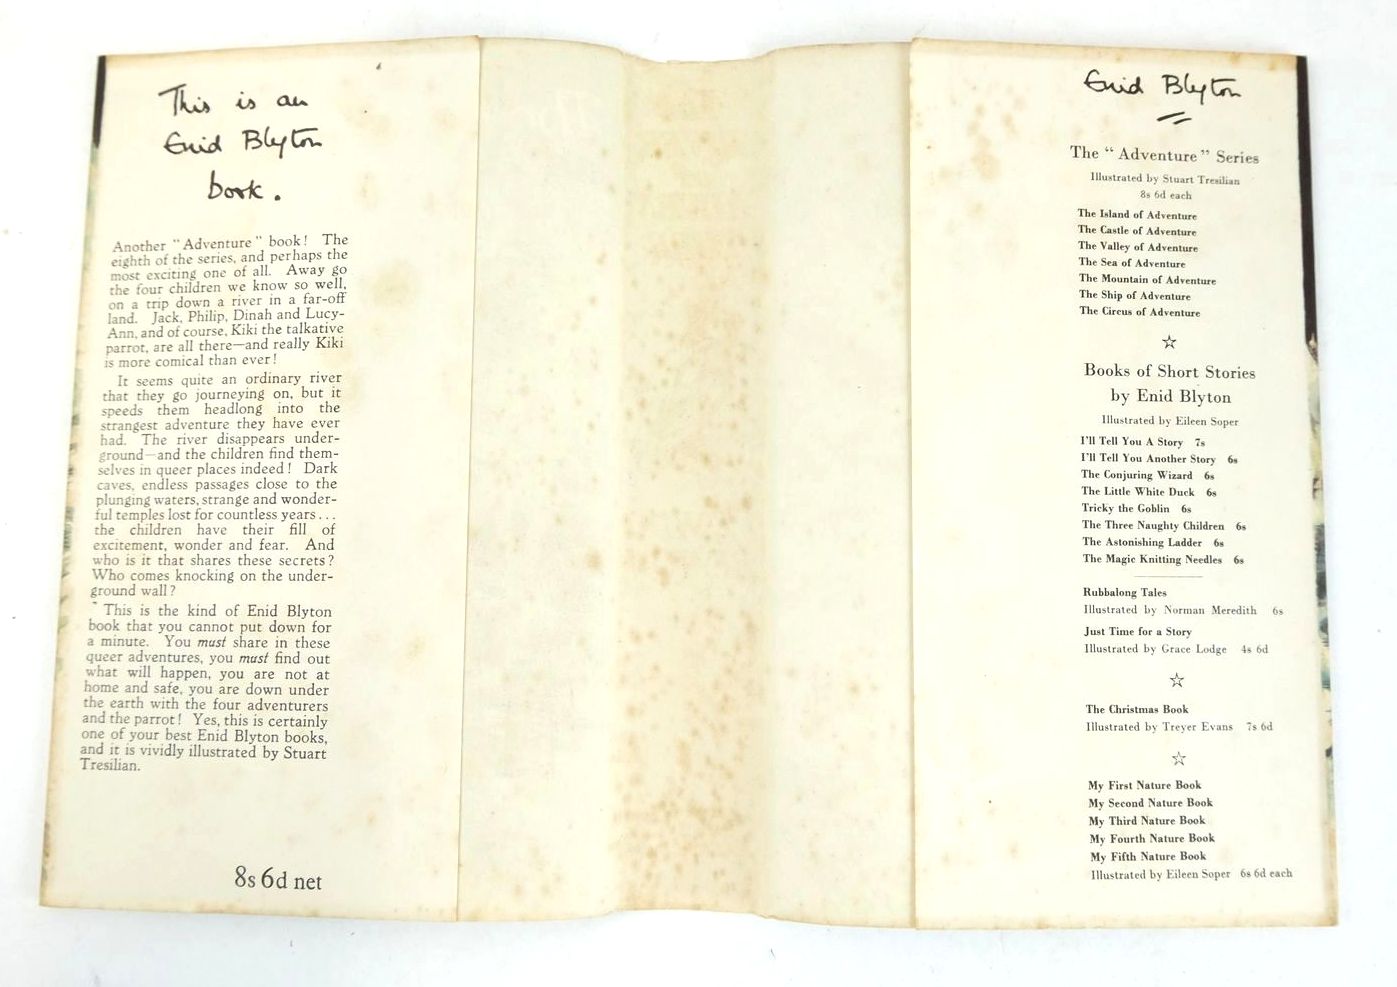 This is an
Enid Blyton
book.
Another "Adventure" book! The
eighth of the series, and perhaps the
most exciting one of all. Away go
the four children we know so well,
on a trip down a river in a far-off
land. Jack, Philip, Dinah and Lucy-
Ann, and of course, Kiki the talkative
parrot, are all there—and really Kiki
is more comical than ever!
It seems quite an ordinary river
that they go journeying on, but it
speeds them headlong into the
strangest adventure they have ever
had. The river disappears under-
ground—and the children find them-
selves in queer places indeed! Dark
caves, endless passages close to the
plunging waters, strange and wonder-
ful temples lost for countless years...
the children have their fill of
excitement, wonder and fear. And
who is it that shares these secrets?
Who comes knocking on the under-
ground wall?
This is the kind of Enid Blyton
book that you cannot put down for
a minute. You must share in these
queer adventures, you must find out
what will happen, you are not at
home and safe, you are down under
the earth with the four adventurers
and the parrot! Yes, this is certainly
one of your best Enid Blyton books,
and it is vividly illustrated by Stuart
Tresilian.
8s 6d net
Enid Blyton
The "Adventure" Series
Illustrated by Stuart Tresilian
8s 6d each
The Island of Adventure
The Castle of Adventure
The Valley of Adventure
The Sea of Adventure
The Mountain of Adventure
The Ship of Adventure
The Circus of Adventure
Books of Short Stories
by Enid Blyton
Illustrated by Eileen Soper
I'll Tell You A Story 7s
I'll Tell You Another Story 6s
The Conjuring Wizard 6s
The Little White Duck 6s
Tricky the Goblin 6s
The Three Naughty Children 6s
The Astonishing Ladder 6s
The Magic Knitting Needles 6s
Rubbalong Tales
Illustrated by Norman Meredith 6s
Just Time for a Story
Illustrated by Grace Lodge 4s 6d
The Christmas Book
Illustrated by Treyer Evans 7s 6d
My First Nature Book
My Second Nature Book
My Third Nature Book
My Fourth Nature Book
My Fifth Nature Book
Illustrated by Eileen Soper 6s 6d each